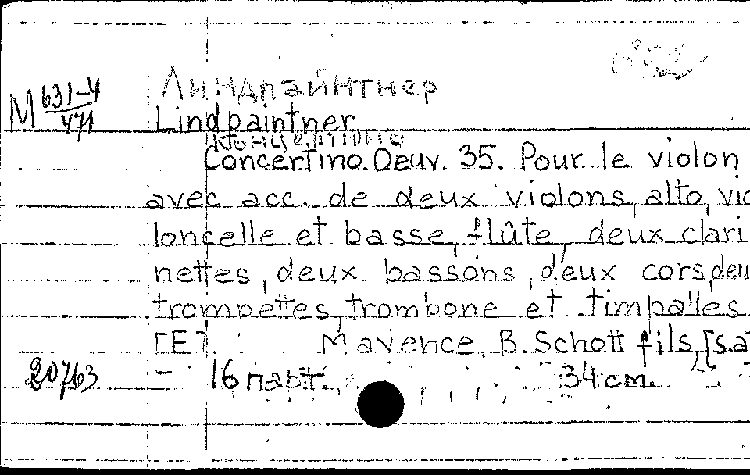 M 631-4/471
Линдпайнтнер
Lindpaintner
Концертино
Concertino. Oeuv. 35. Pour le violon
avec acc. de deux violons, alto, vio
loncelle et basse, flûte, deux clari
nettes, deux bassons, deux cors, deu
trompettes, trombone et timpalles
[E] Mayence, B. Schott fils, [s.a
20763 — 16 парт. 34 см.